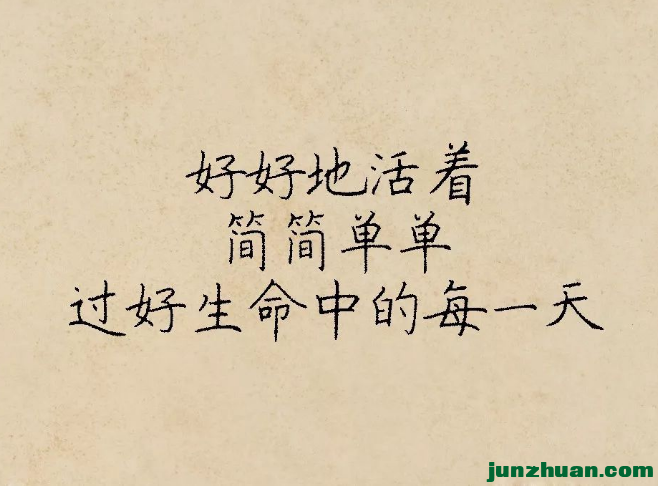 好好地活着
简简单单
过好生命中的每一天
junzhuan.com